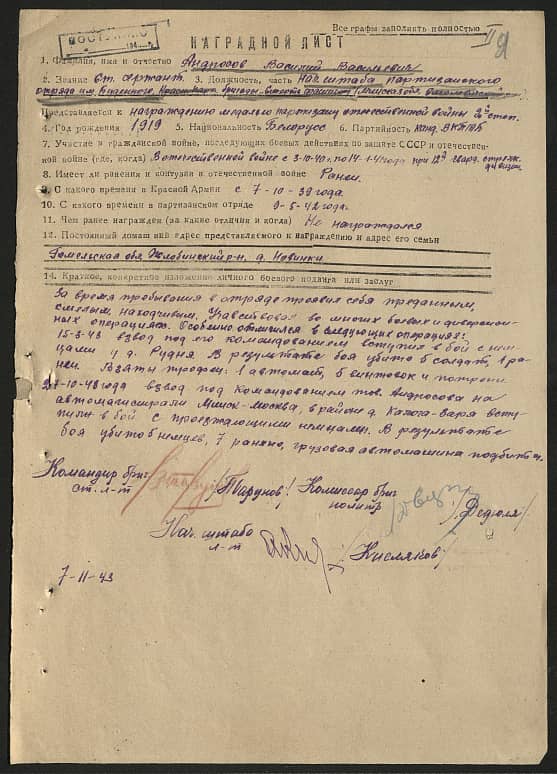 Все графы заполнять полностью
НАГРАДНОЙ ЛИСТ
1. Фамилия, имя и отчество Андросов Василий Васильевич
2. Звание ст. сержант 3. Должность, часть Нач. штаба партизанского
отряда им. Буденного,
Представляется к награждению медалью партизану отечественной войны 2й степ.
4. Год рождения 1919 5. Национальность Белорусс 6. Партийность канд. ВКП/б/
7. Участие в гражданской войне, последующих боевых действиях по защите СССР и отечествен-
ной войне (где, когда) В отечественной войне с 3-10-40г. по 14-1-41 года при 12й гвард. стрелк.
дивизии
8. Имеет ли ранения и контузии в отечественной войне Ранен.
9. С какого времени в Красной Армии с 7-10-39 года.
10. С какого времени в партизанском отряде 9-5-42 года.
11. Чем ранее награжден (за какие отличия и когда) Не награждался
12. Постоянный домашний адрес представляемого к награждению и адрес его семьи
Гомельская обл. Жлобинский р-н. д. Новинки.
14. Краткое, конкретное изложение личного боевого подвига или заслуг
За время пребывания в отряде проявил себя преданным,
смелым, находчивым. Участвовал во многих боевых и диверсион-
ных операциях. Особенно отличился в следующих операциях:
15-3-43 взвод под его командованием вступил в бой с нем-
цами у д. Рудня. В результате боя убито 6 солдат, 1 ра-
нен. Взяты трофеи: 1 автомат, 6 винтовок и патроны
27-10-43 года взвод под командованием тов. Андросова на
автомагистрали Минск-Москва, в районе д. всту-
пил в бой с проезжающими немцами. В результате
боя убито 6 немцев, 7 ранено, грузовая автомашина подбита.
Командир бриг. /Тарунов/ Комиссар бриг.
ст. л-т политр /Федюля/
Нач. штаба
л-т Кисляков/
7-11-43